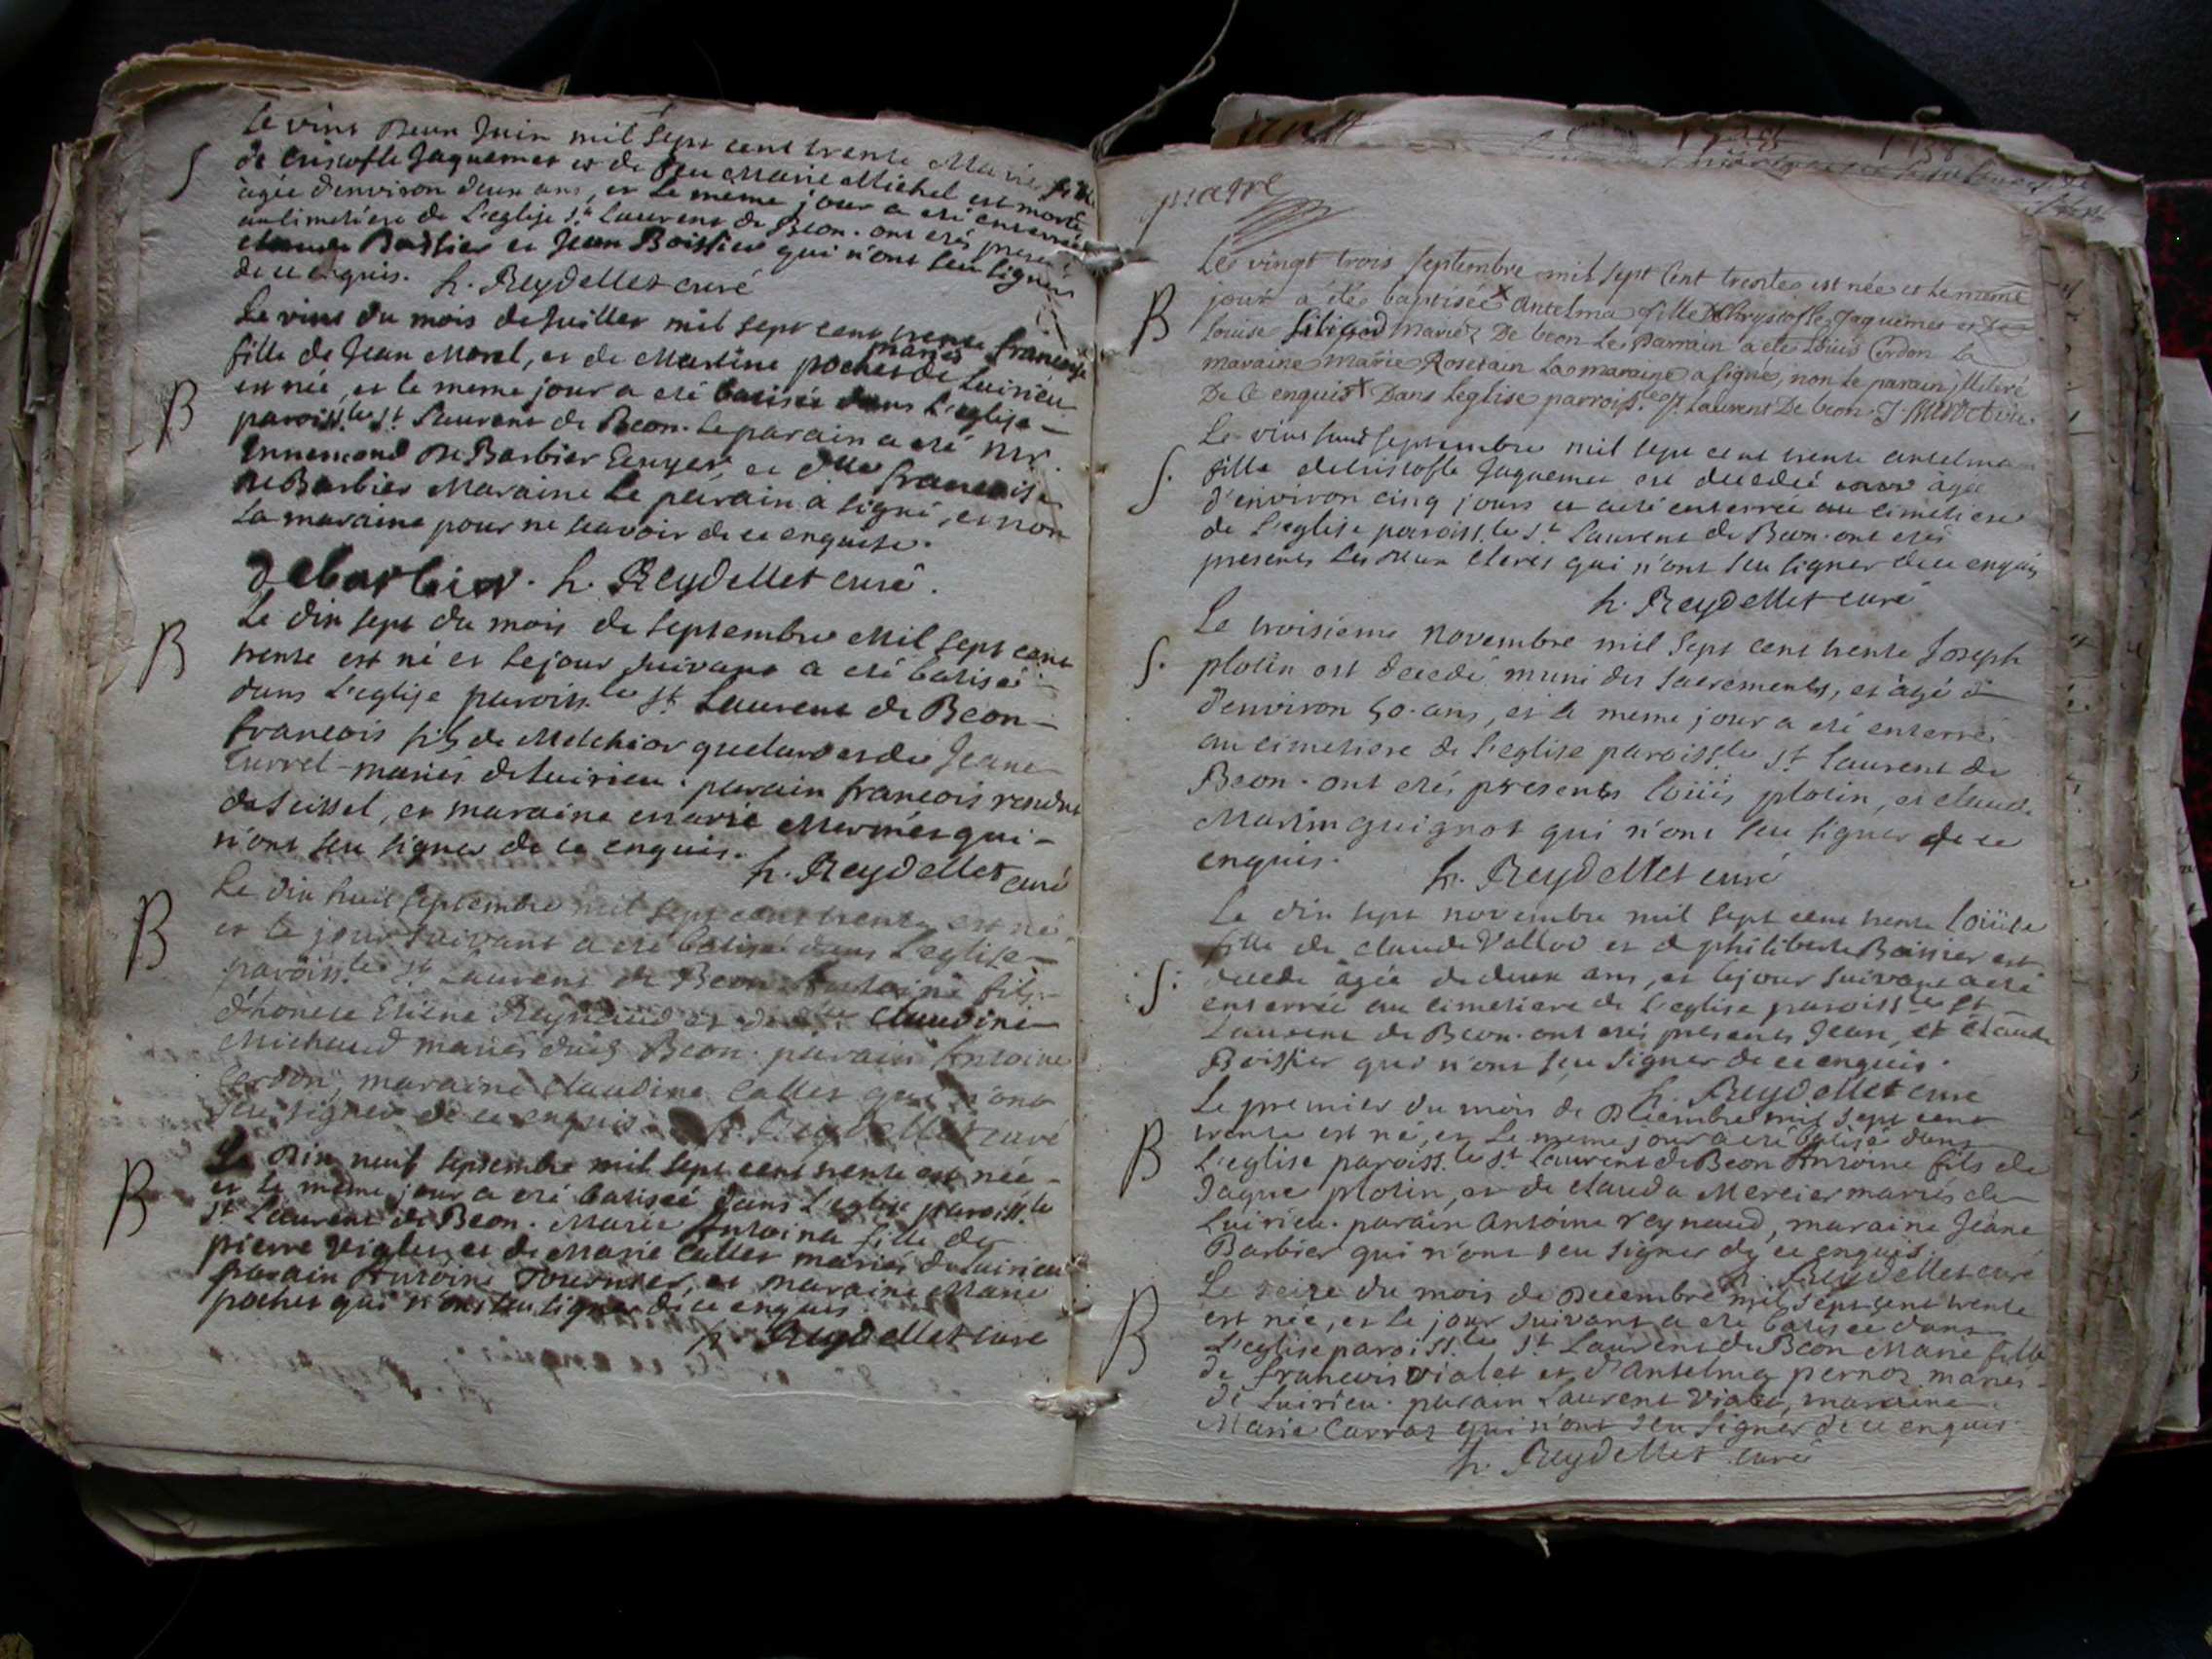 Le vint deux Juin mil sept cent trente Marie fille
S de Cristofle Jaquemet et de feu Marie Michel est morte
agée denviron deux ans, et le meme jour a eté enterrée
au cimetiere de L'eglise St Laurent de Beon. ont etés presents
claude Boissier et Jean Boissier qui n'ont seu signer
de ce enquis. h. Reydellet curé
Le vint du mois de Juillet mil sept cent trente francoise
fille de Jean Morel, et de Martine pochet mariés de Luirieu
B est née, et le meme jour a eté batisée dans L'eglise
paroiss.le St Laurent de Beon. Le parain a eté Mr.
Ennemond De Barbier Ecuyer et dlle francoise
De Barbier Maraine Le parain a signé, et non
La maraine pour ne scavoir de ce enquise.
debarbier. h. Reydellet curé.
Le dix sept du mois de septembre Mil sept cent
B trente est né et le jour suivant a eté batisé
dans L'eglise paroiss.le St Laurent de Beon
francois fils de Melchior quelard et de Jeane
Curret mariés de Luirieu. parain francois
de Seissel, et maraine Marie Mermet qui
n'ont seu signer de ce enquis.
h. Reydellet curé
Le dix huit septembre mil sept cent trente est né
B et le jour suivant a eté batisé dans L'eglise
paroiss.le St Laurent de Beon Antoine fils
d'honete Etiene Reynaud et de Claudine
Michaud mariés dud Beon. parain Antoine
Cerdon, maraine Claudine Callet qui n'ont
seu signer de ce enquis. h. Reydellet curé
Le dix neuf septembre mil sept cent trente est née
B et le meme jour a eté batisée dans L'eglise paroiss.le
St Laurent de Beon. Marie Antoina fille de
pierre Vialet et de Marie Callet mariés de Luirieu
parain Antoine Tournier, et maraine Marie
pochet qui n'ont seu signer de ce enquis.
h. Reydellet curé
Le vingt trois septembre mil sept Cent trente est née et le meme
B jour a été baptisée x Antelma fille De Chrystofle Jaquemet et De
Louise mariez De beon Le Parrain a ete Loüis Cerdon La
maraine Marie Rosetain La maraine a signé, non le parain, illitéré
De Ce enquis x Dans Leglise parroiss.le St Laurent De beon
Le vint huit septembre mil sept cent trente antelma
S. fille de Cristofle Jaquemet est decedée agée
d'environ cinq jours et a eté enterrée au cimetiere
de L'eglise paroiss.le St Laurent de Beon. ont etés
presents Les deux clercs qui n'ont seu signer de ce enquis
h. Reydellet curé
Le troisieme novembre mil sept cent trente Joseph
S. plotin est decedé muni des sacrements, et agé
d'environ 50. ans, et le meme jour a eté enterré
au cimetiere de L'eglise paroiss.le St Laurent de
Beon. ont etés presents Loüis plotin, et claude
Martin guignot qui n'ont seu signer de ce
enquis. h. Reydellet curé
Le dix sept novembre mil sept cent trente Loüise
fille de claude Vallod et de philiberte Boissier est
S. decedée agée de deux ans, et le jour suivant a eté
enterrée au cimetiere de L'eglise paroiss.le St
Laurent de Beon. ont etés presents Jean, et claude
Boissier qui n'ont seu signer de ce enquis.
h. Reydellet curé
Le premier du mois de Decembre mil sept cent
B trente est né, et Le meme jour a eté batisé dans
L'eglise paroiss.le St Laurent de Beon Antoine fils de
Jaque plotin, et de clauda Mercier mariés de
Luirieu. parain Antoine reynaud, maraine Jeane
Barbier qui n'ont seu signer de ce enquis.
h. Reydellet curé
Le seize du mois de Decembre mil sept cent trente
B est née, et le jour suivant a eté batisée dans
L'eglise paroiss.le St Laurent de Beon Marie fille
de francois Vialet et d'Antelma pernoz mariés
de Luirieu. parain Laurent Vialet, maraine
Marie Carraz qui n'ont seu signer de ce enquis
h. Reydellet curé